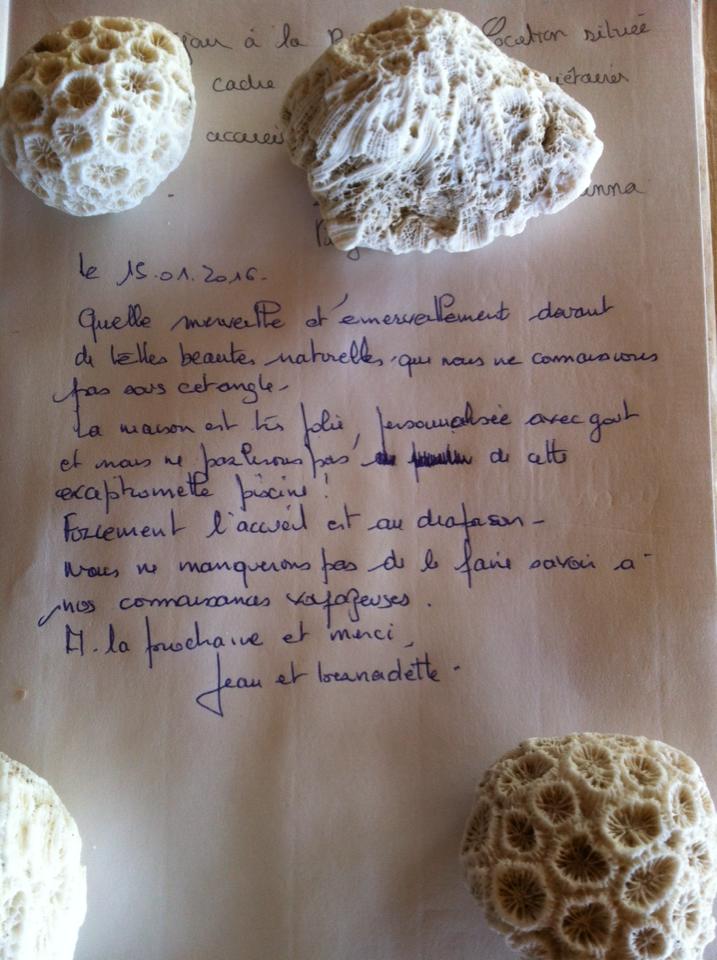 à la location située
cadre
le 15.01.2016.
Quelle merveille et émerveillement devant
de telles beautes naturelles, que nous ne connaissions
pas sous cet angle.
La maison est très jolie, personnalisée avec goût
et nous ne parlerons pas, de cette
exceptionnelle piscine !
Forcement l'accueil est au diapason -
Nous ne manquerons pas de le faire savoir à
nos connaissances voyageuses.
A la prochaine et merci,
Jean et bernadette.